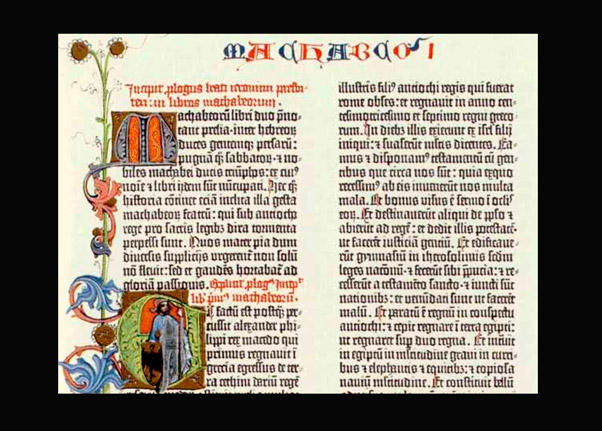 MACHABEO I
Incipit plogus beati ieronimi presbi-
teri in libros machabeorum.
Machabeorū libri duo pno-
tant prelia inter hebreorū
duces gentemq; persarū:
pugnā q̄ sabbatorū et no-
biles machabei ducis triumphos: ex cui⁹
noīe et libri ijdem sūt nūcupati. hec q̄q;
historia cōtinet eciā inclita illa gesta
machabeorū fratrū: qui sub antiocho
rege pro sacris legibz dira tormenta
perpessi sunt. Quos mater pia dum
diuersis supplicijs urgerent non solū
nō fleuit: sed et gaudēs hortabat ad
gloriā passionis. Explicit plog⁹ Incip̄
lib' pm⁹ machabeorū.
Et factū est postq̄ per-
cussit alexander phi-
lippi rex macedo qui
primus regnauit ī
grecia egressus de ter-
ra cethim dariū regē
illustris fili⁹ antiochi regis qui fuerat
rome obses: et regnauit in anno cen-
tesimotricesimo et septimo regni greco-
rum. In diebz illis exierunt ex isrl filij
iniqui: et suaserunt multis dicentes. Ea-
mus et disponam⁹ testamentū cū gen-
tibus que circa nos sūt: quia ex quo
recessim⁹ ab eis inuenerūt nos multa
mala. Et bonus visus ē sermo ī oculis
eorū. Et destinauerūt aliqui de pplo et
abierūt ad regē: et dedit illis potestatē
ut facerēt iusticiā gentiū. Et edificaue-
rūt gymnasiū in iherosolimis sedm
leges nationū: et fecerūt sibi ppucia: et re-
cesserūt a testamēto sancto: et iuncti sūt
nationibz: et venūdati sunt ut facerēt
malū. Et paratū ē regnū in conspectu
antiochi: et cepit regnare ī terra egipti:
ut regnaret sup duo regna. Et intrauit
in egiptū in multitudine graui in curri-
bus et elephantis et equitibz: et copiosa
nauiū multitudine. Et constituit bellū